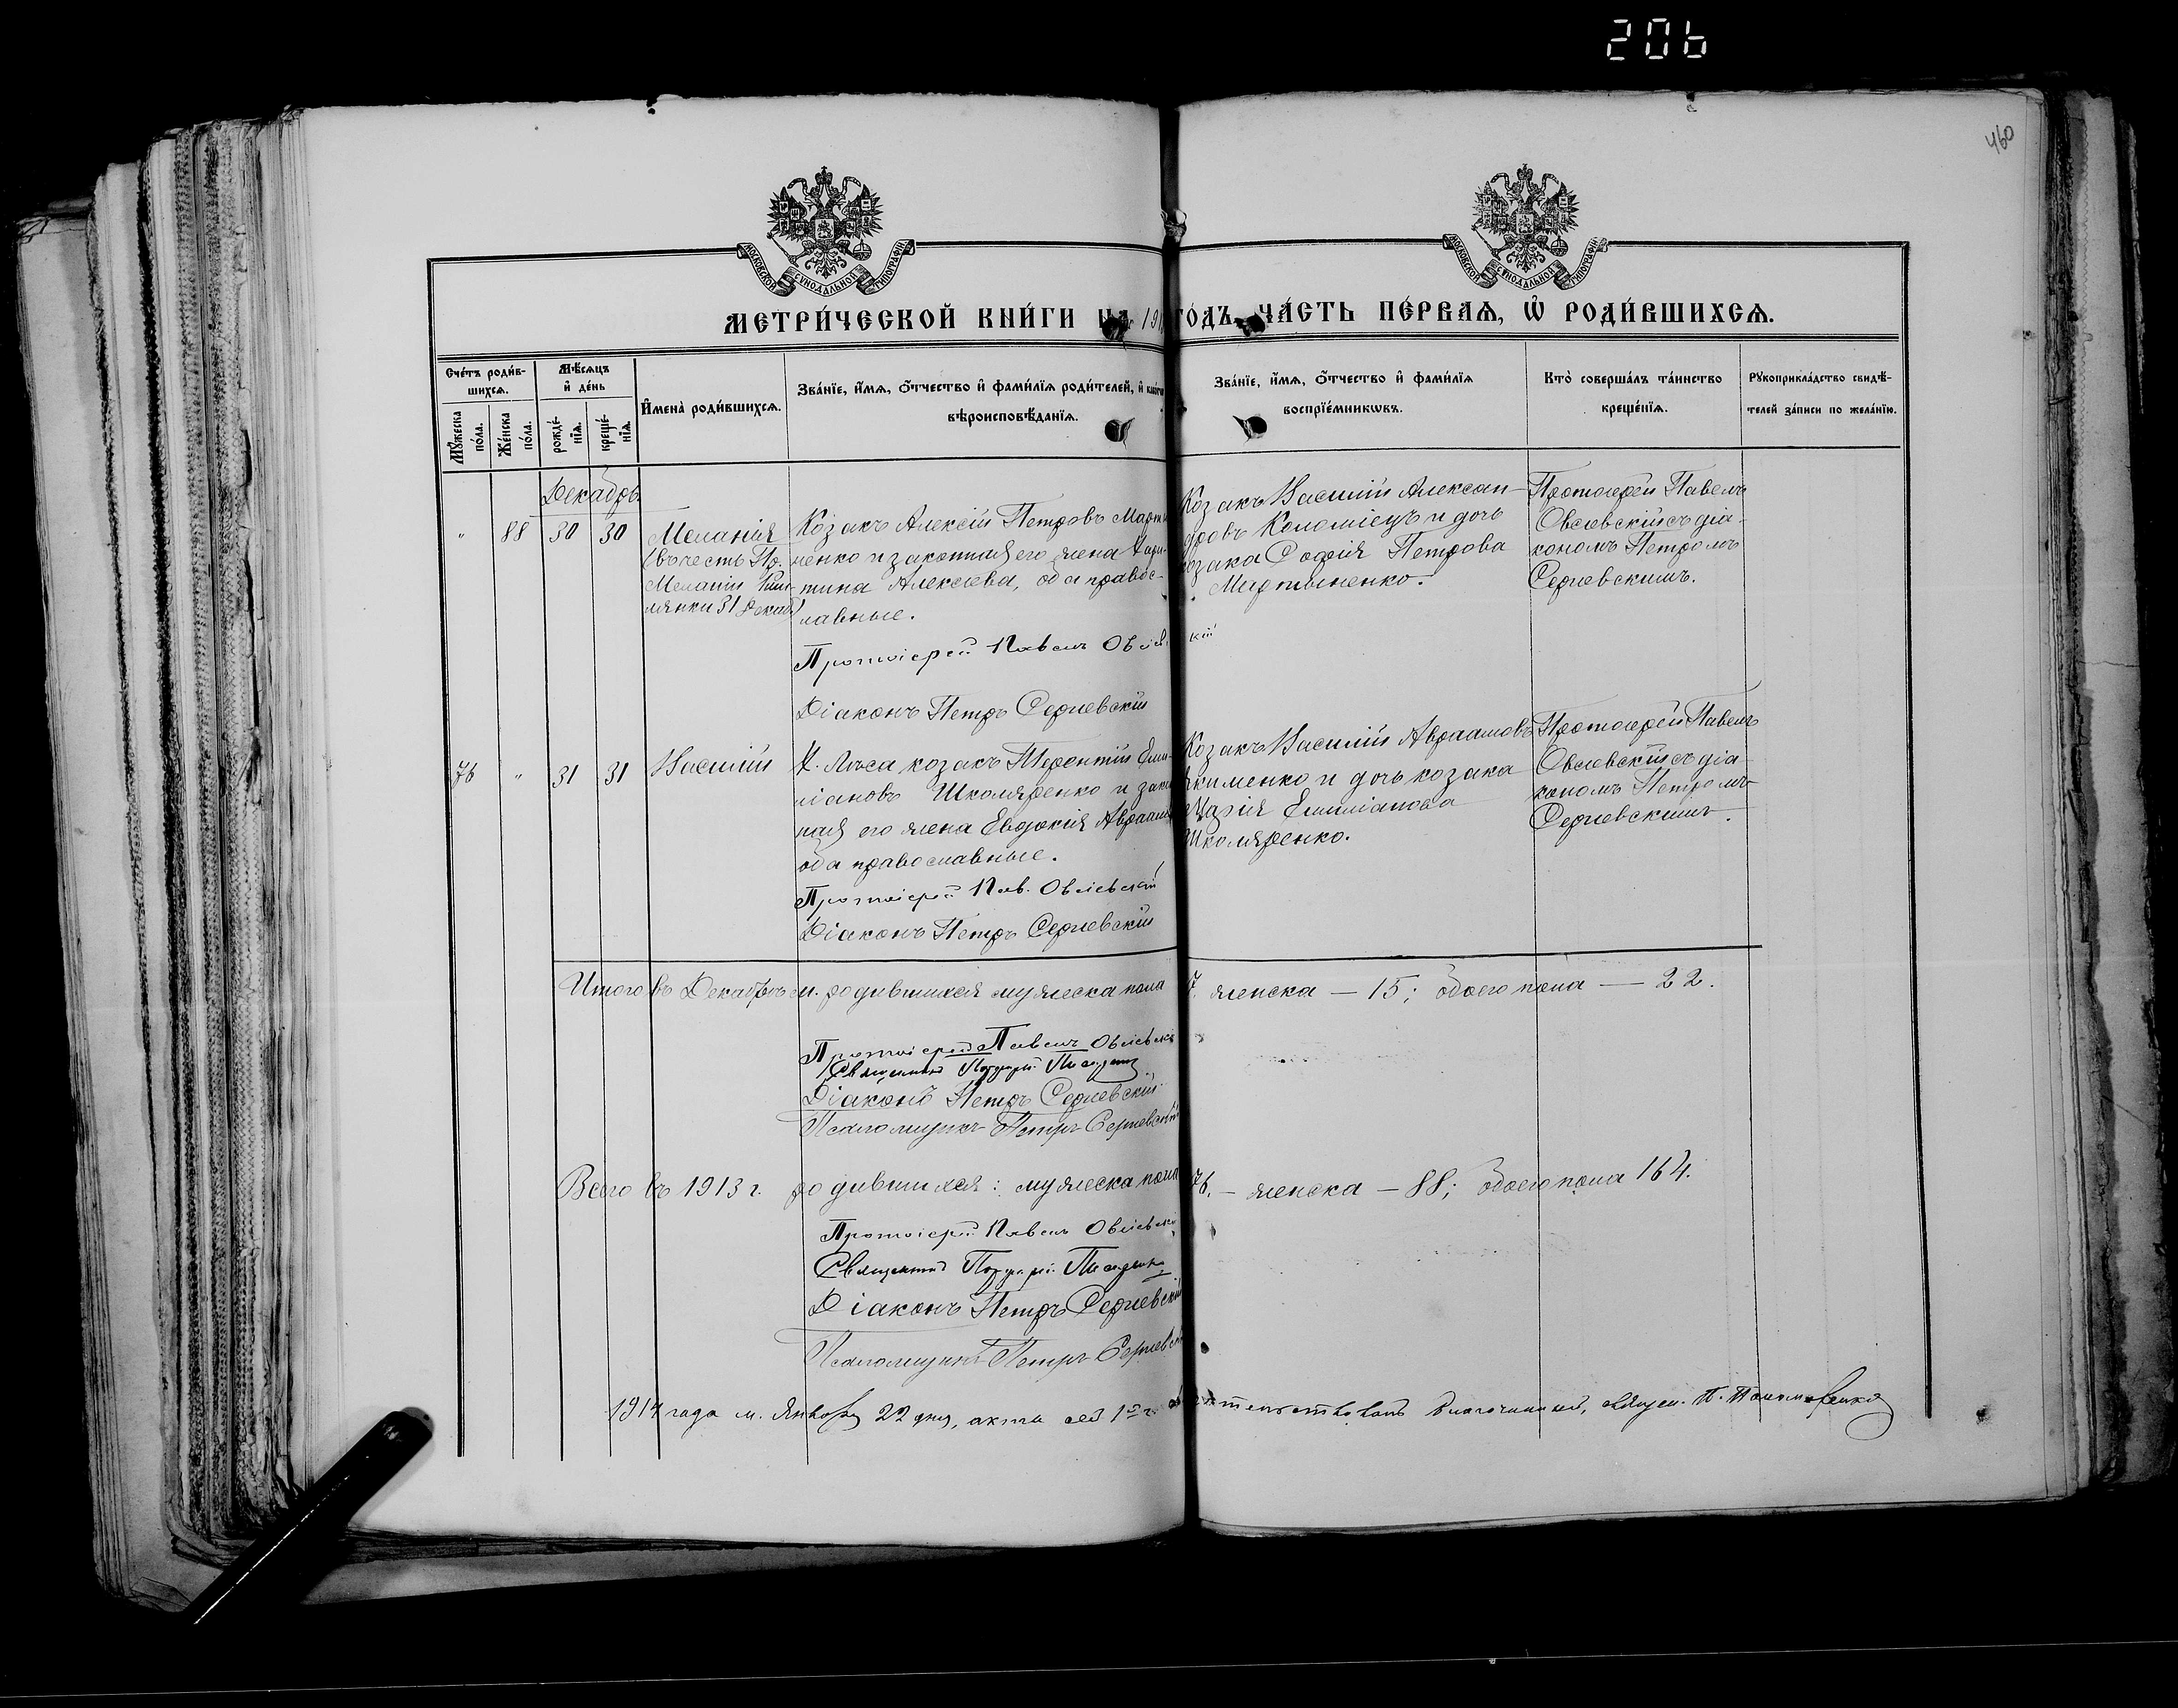 206
460
МОСКОВСКОЙ СѴНОДАЛЬНОЙ ТИПОГРАФІИ
МОСКОВСКОЙ СѴНОДАЛЬНОЙ ТИПОГРАФІИ
МЕТРИ́ЧЕСКОЙ КНИ́ГИ НА 191 ГО́ДЪ, ЧА́СТЬ ПЕ́РВАѦ, Ѡ҆ РОДИ́ВШИХСѦ.
Сче́тъ роди́в-
шихсѧ.
Мѣ́сяцъ
и҆ де́нь
Мꙋ́жеска
по́ла.
Же́нска
по́ла.
рожде́-
нїѧ.
креще́-
нїѧ.
И҆мена̀ роди́вшихсѧ.
Зва́нїе, и҆́мѧ, ѻ҆́тчество и҆ фами́лїѧ роди́телей, и҆
вѣроисповѣ́данїѧ.
Зва́нїе, и҆́мѧ, ѻ҆́тчество и҆ фами́лїѧ
воспрїе́мникѡвъ.
Кто̀ соверша́лъ та́инство
креще́нїѧ.
Рꙋкоприкла́дство свидѣ́-
телей за́писи по жела́нїю.
Декабрь
" 88 30 30
Меланія
(въ честь Пр.
Меланіи Рим-
лянки 31 Декаб.)
Козакъ Алексій Петровъ Марты
ненко и законная его жена Хари-
тина Алексіева, оба правос-
лавные.
Протоіерей Павелъ Овсіевскій
Діаконъ Петръ Сергіевскій
Козакъ Василій Алексан-
дровъ Коломіецъ и дочь
козака Софія Петрова
Мартыненко.
Протоіерей Павелъ
Овсіевскій съ діа-
кономъ Петромъ
Сергіевскимъ.
76 " 31 31
Василій
Х. Лиса козакъ Терентій Еми-
ліановъ Школяренко и закон
ная его жена Евдокія Авраам
оба православные.
Протоіерей Пав. Овсіевскій
Діаконъ Петръ Сергіевскій
Козакъ Василій Авраамовъ
Якименко и дочь козака
Марія Емиліанова
Школяренко.
Протоіерей Павелъ
Овсіевскій съ діа-
кономъ Петромъ
Сергіевскимъ.
Итого въ Декабрѣ м. родившихся мужеска пола 7. женска — 15; обоего пола — 22.
Протоіерей Павелъ Овсіевскій
Священникъ
Діаконъ Петръ Сергіевскій
Псаломщикъ Петръ Сергіевскій
Всего въ 1913 г. родившихся: мужеска пола 76. — женска — 88; обоего пола 164.
Протоіерей Павелъ Овсіевскій
Священникъ
Діаконъ Петръ Сергіевскій
Псаломщикъ Петръ Сергіевскій
1914 года м. Января 22 дня, акты сей 1й ч. свидѣтельствовалъ благочинный, священ. П. Пономаренко